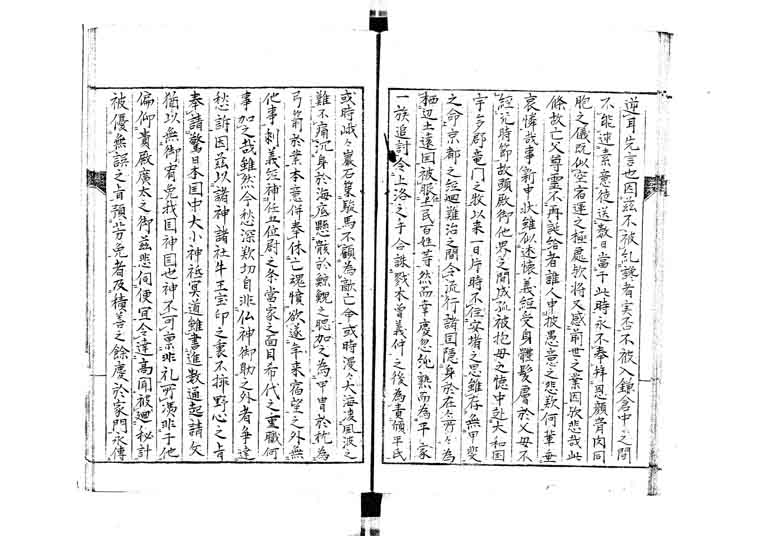 逆耳先言也因茲不被糺讒者実否不被入鎌倉中之間
不能述素意徒送数日當于此時永不奉拝恩顔骨肉同
胞之儀既似空宿運之極處欤将又感前世之業因欤悲哉此
條故亡父尊霊不再誕給者誰人申披愚意之悲歎何輩垂
哀憐哉事新申状雖似述懐義経受身體髪膚於父母不
経幾時節故頭殿御他界之間成孤被抱母之懐中赴大和国
宇多郡竜門之牧以来一日片時不住安堵之思雖存無甲斐
之命京都之経廻難治之間令流行諸国隠身於在々所々為
栖辺土遠国被服仕土民百姓等然而幸慶忽純熟而為平家
一族追討令上洛之手合誅戮木曾義仲之後為責傾平氏
或時峨々巖石策駿馬不顧為敵亡命或時漫々大海凌風波之
難不痛沉身於海底懸骸於鯨鯢之腮加之為甲冑於枕為
弓箭於業本意併奉休亡魂憤欲遂年来宿望之外無
他事剰義経補任五位尉之条當家之面目希代之重職何
事加之哉雖然今愁深歎切自非仏神御助之外者争達
愁訴因茲以諸神諸社牛王宝印之裏不挿野心之旨
奉請驚日本国中大小神祇冥道雖書進数通起請文
猶以無御宥免我国神国也神不可禀非礼所憑非于他
偏仰貴殿廣太之御慈悲伺便宜令達高聞被廻秘計
被優無誤之旨預芳免者及積善之餘慶於家門永傳